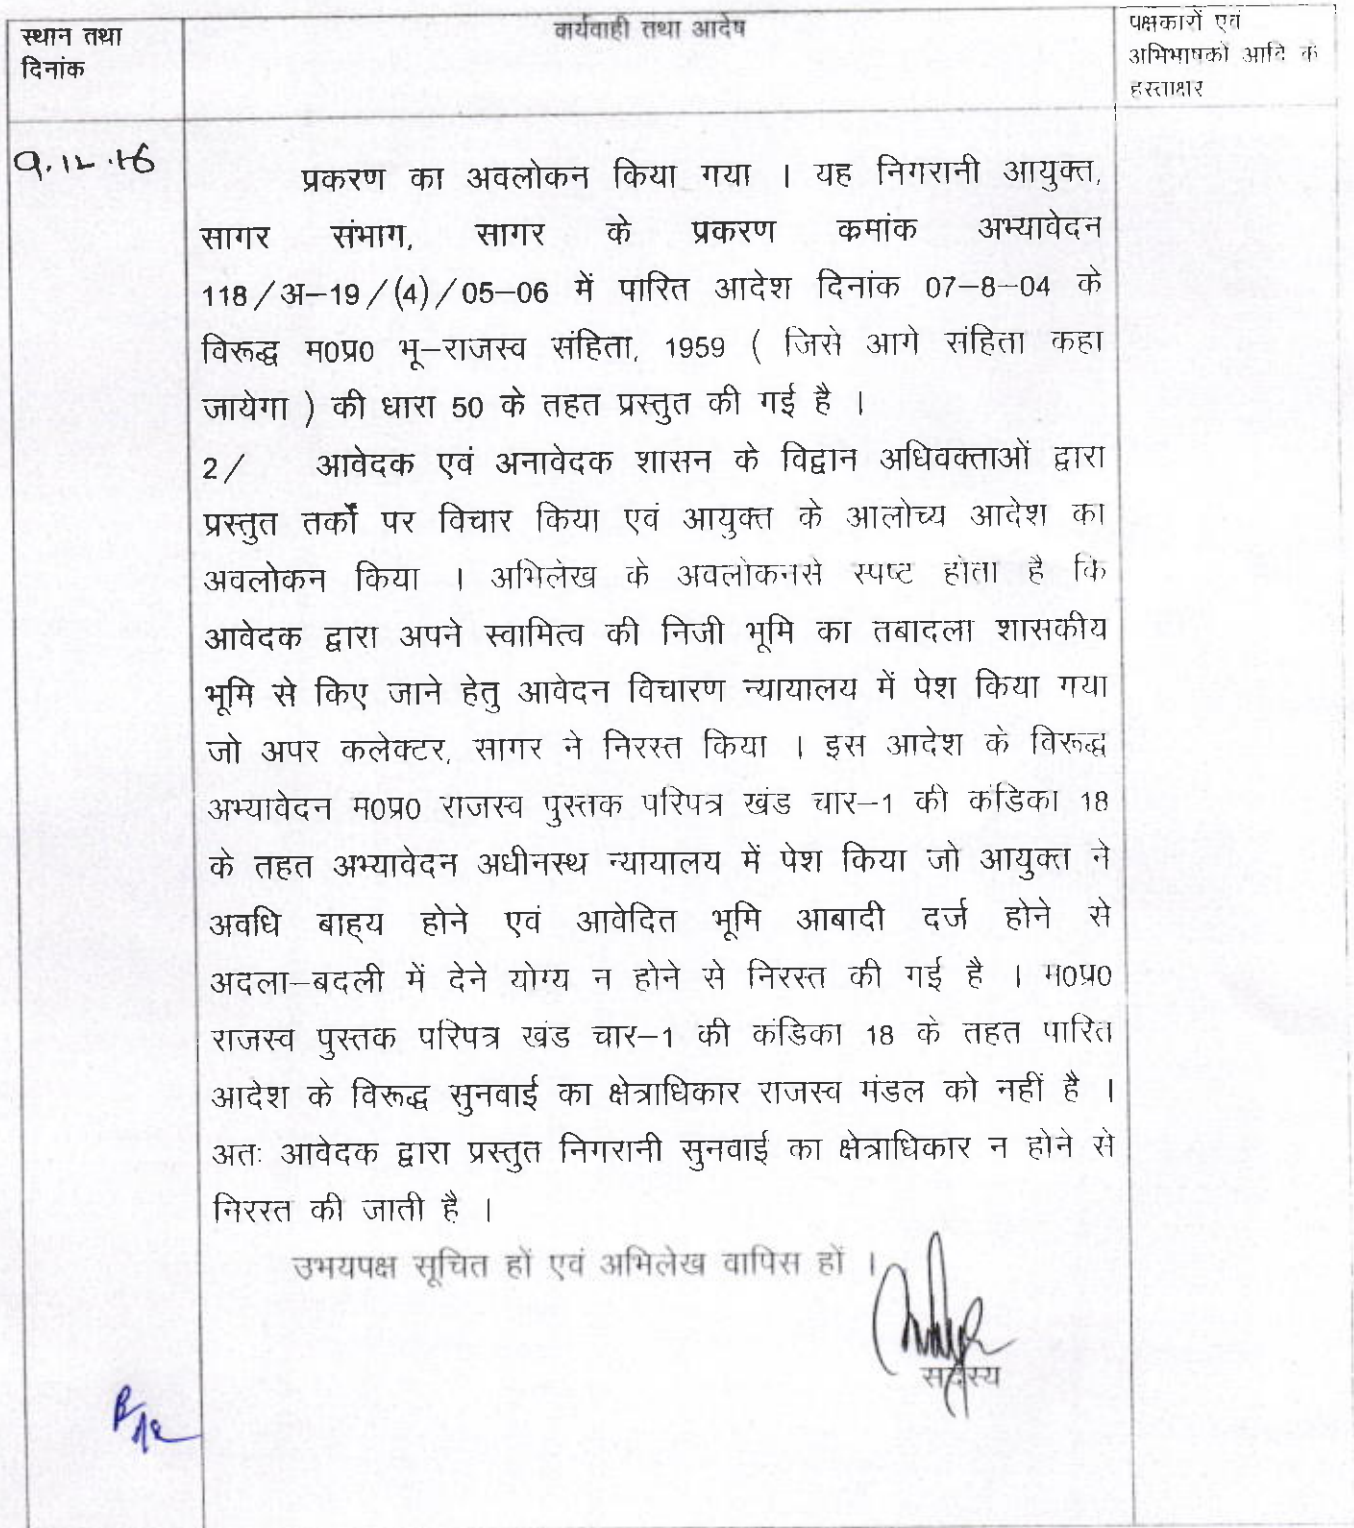 स्थान तथा
दिनांक
कार्यवाही तथा आदेष
पक्षकारों एवं
अभिभाषकों आदि के
हस्ताक्षर
9.12.16
प्रकरण का अवलोकन किया गया । यह निगरानी आयुक्त,
सागर संभाग, सागर के प्रकरण कमांक अभ्यावेदन
118/अ–19/(4)/05–06 में पारित आदेश दिनांक 07–8–04 के
विरूद्ध म0प्र0 भू–राजस्व संहिता, 1959 ( जिसे आगे संहिता कहा
जायेगा ) की धारा 50 के तहत प्रस्तुत की गई है ।
2/ आवेदक एवं अनावेदक शासन के विद्वान अधिवक्ताओं द्वारा
प्रस्तुत तर्कों पर विचार किया एवं आयुक्त के आलोच्य आदेश का
अवलोकन किया । अभिलेख के अवलोकनसे स्पष्ट होता है कि
आवेदक द्वारा अपने स्वामित्व की निजी भूमि का तबादला शासकीय
भूमि से किए जाने हेतु आवेदन विचारण न्यायालय में पेश किया गया
जो अपर कलेक्टर, सागर ने निरस्त किया । इस आदेश के विरूद्ध
अभ्यावेदन म0प्र0 राजस्व पुस्तक परिपत्र खंड चार–1 की कंडिका 18
के तहत अभ्यावेदन अधीनस्थ न्यायालय में पेश किया जो आयुक्त ने
अवधि बाह्य होने एवं आवेदित भूमि आबादी दर्ज होने से
अदला–बदली में देने योग्य न होने से निरस्त की गई है । म0प्र0
राजस्व पुस्तक परिपत्र खंड चार–1 की कंडिका 18 के तहत पारित
आदेश के विरूद्ध सुनवाई का क्षेत्राधिकार राजस्व मंडल को नहीं है ।
अतः आवेदक द्वारा प्रस्तुत निगरानी सुनवाई का क्षेत्राधिकार न होने से
निररत की जाती है ।
उभयपक्ष सूचित हों एवं अभिलेख वापिस हों ।
सदस्य